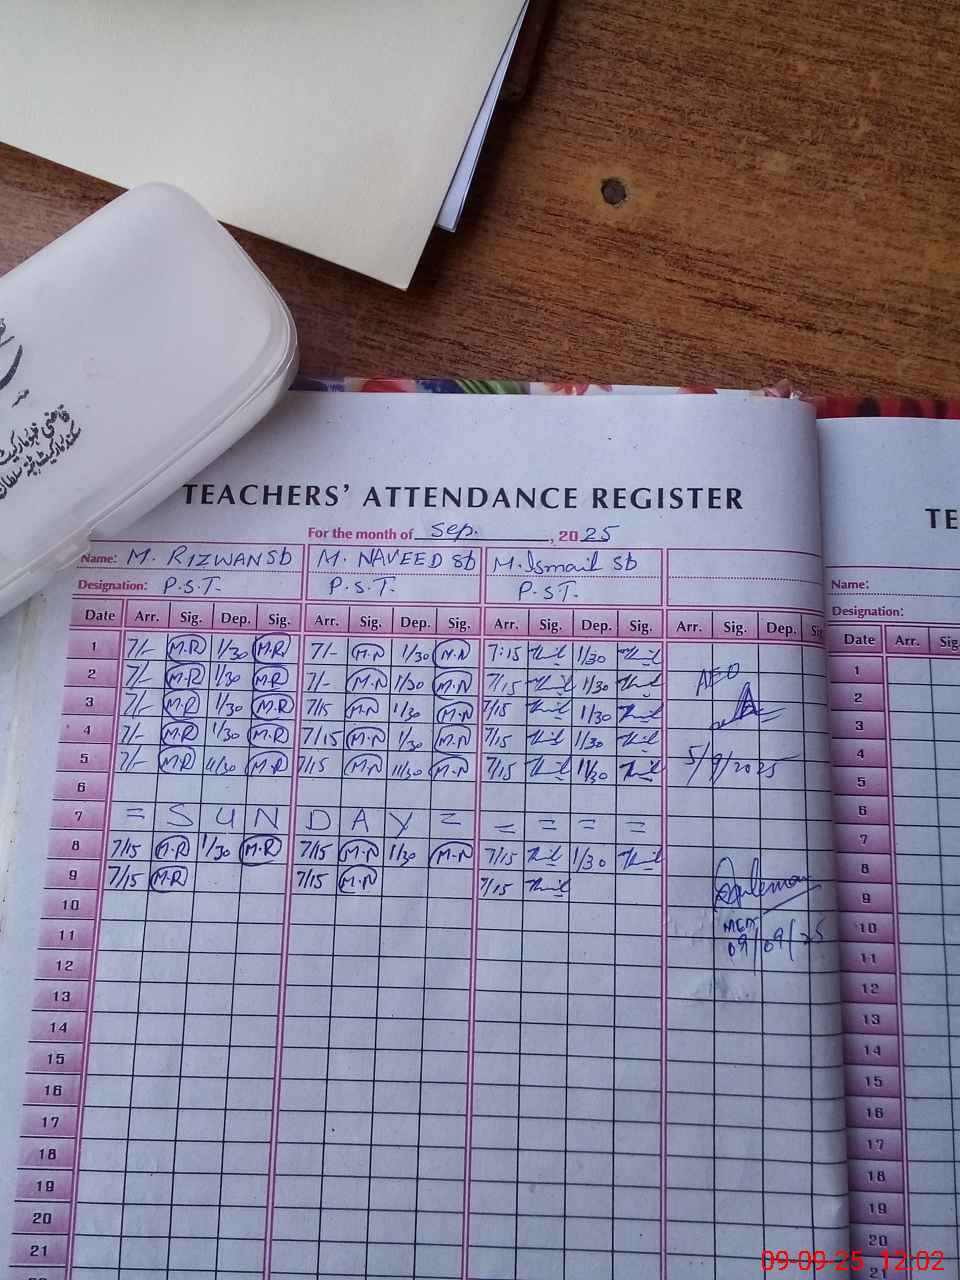 قاضی
TEACHERS' ATTENDANCE REGISTER
For the month of Sep. , 2025
Name: M. RIZWAN Sb M. NAVEED Sb M. Ismail Sb
Designation: P.S.T. P.S.T. P.S.T.
Date Arr. Sig. Dep. Sig. Arr. Sig. Dep. Sig. Arr. Sig. Dep. Sig. Arr. Sig. Dep. Sig
1 7/- M.R 1/30 M.R 7/- M.N 1/30 M.N 7:15 1/30
2 7/- M.R 1/30 M.R 7/- M.N 1/30 M.N 7/15 1/30 AEO
3 7/- M.R 1/30 M.R 7/15 M.N 1/30 M.N 7/15 1/30
4 7/- M.R 1/30 M.R 7/15 M.N 1/30 M.N 7/15 1/30
5 7/- M.R 11/30 M.R 7/15 M.N 11/30 M.N 7/15 11/30 5/9/2025
6
7 = S U N D A Y = = = = =
8 7/15 M.R 1/30 M.R 7/15 M.N 1/30 M.N 7/15 1/30
9 7/15 M.R 7/15 M.N 7/15
10 09/09/25
11
12
13
14
15
16
17
18
19
20
21
TE
Name:
Designation:
Date Arr. Sig
1
2
3
4
5
6
7
8
9
10
11
12
13
14
15
16
17
18
19
20
21
09-09-25 12:02